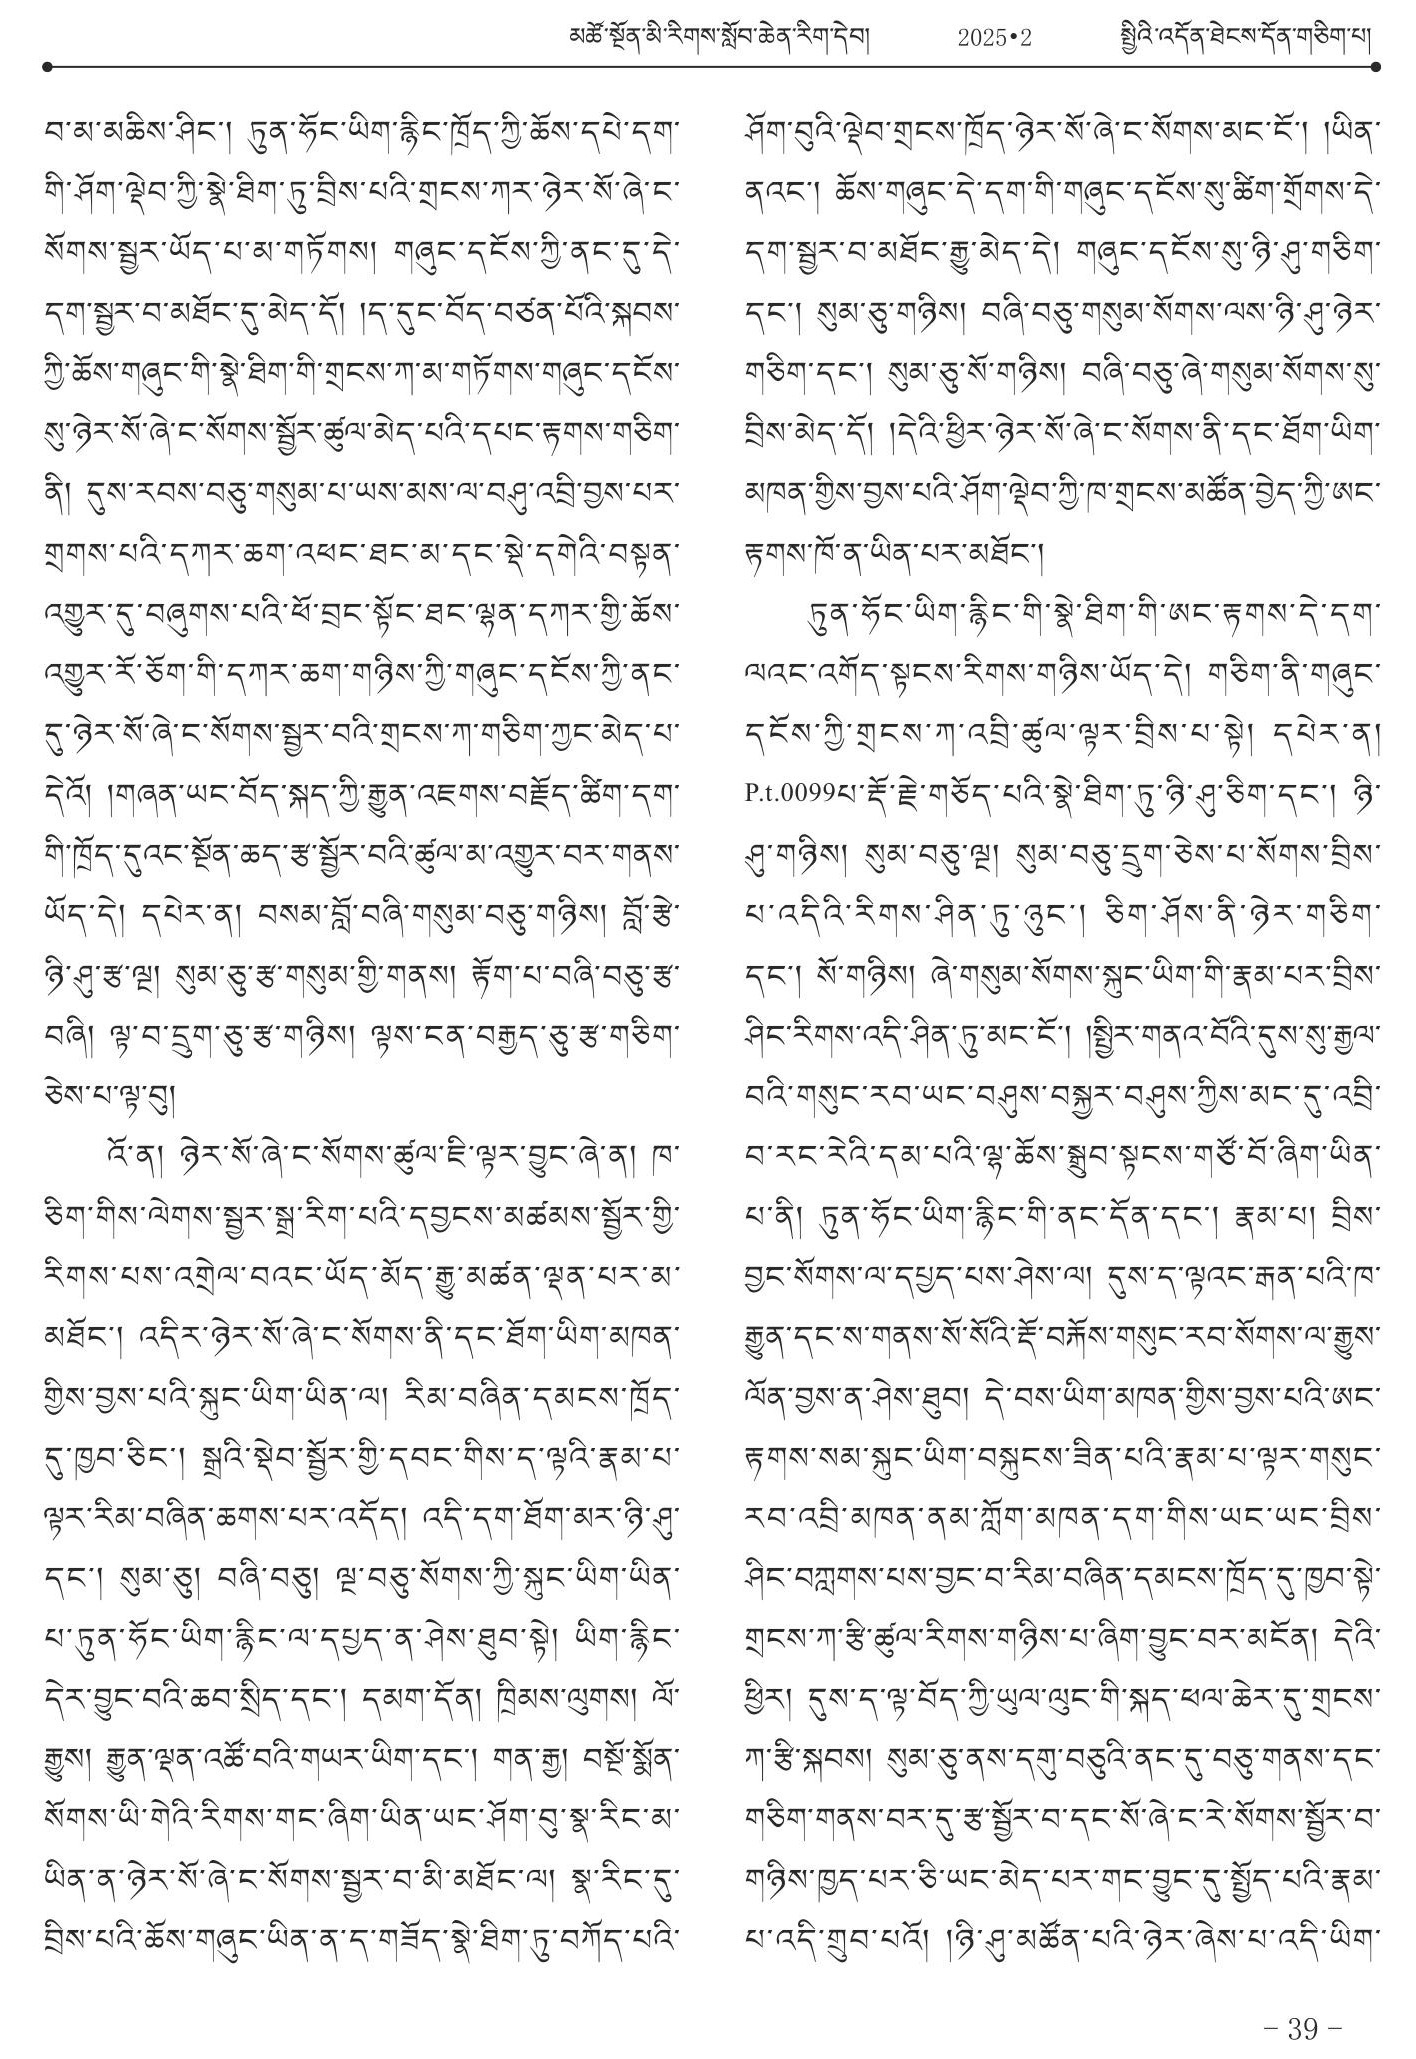 མཚོ་སྔོན་མི་རིགས་སློབ་ཆེན་རིག་དེབ། 2025•2 སྤྱིའི་འདོན་ཐེངས་དོན་གཅིག་པ།
བ་མ་མཆིས་ཤིང་། ཏུན་ཧོང་ཡིག་རྙིང་ཁྲོད་ཀྱི་ཆོས་དཔེ་དག་
གི་ཤོག་ལྡེབ་ཀྱི་སྣེ་ཐིག་ཏུ་བྲིས་པའི་གྲངས་ཀར་ཉེར་སོ་ཞེ་ང་
སོགས་སྦྱར་ཡོད་པ་མ་གཏོགས། གཞུང་དངོས་ཀྱི་ནང་དུ་དེ་
དག་སྦྱར་བ་མཐོང་དུ་མེད་དོ། །ད་དུང་བོད་བཙན་པོའི་སྐབས་
ཀྱི་ཆོས་གཞུང་གི་སྣེ་ཐིག་གི་གྲངས་ཀ་མ་གཏོགས་གཞུང་དངོས་
སུ་ཉེར་སོ་ཞེ་ང་སོགས་སྦྱོར་ཚུལ་མེད་པའི་དཔང་རྟགས་གཅིག་
ནི། དུས་རབས་བཅུ་གསུམ་པ་ཡས་མས་ལ་བཤུ་འབྲི་བྱས་པར་
གྲགས་པའི་དཀར་ཆག་འཕང་ཐང་མ་དང་སྡེ་དགེའི་བསྟན་
འགྱུར་དུ་བཞུགས་པའི་ཕོ་བྲང་སྟོང་ཐང་ལྷན་དཀར་གྱི་ཆོས་
འགྱུར་རོ་ཅོག་གི་དཀར་ཆག་གཉིས་ཀྱི་གཞུང་དངོས་ཀྱི་ནང་
དུ་ཉེར་སོ་ཞེ་ང་སོགས་སྦྱར་བའི་གྲངས་ཀ་གཅིག་ཀྱང་མེད་པ་
དེའོ། །གཞན་ཡང་བོད་སྐད་ཀྱི་རྒྱུན་འཇགས་བརྗོད་ཚིག་དག་
གི་ཁྲོད་དུའང་སྔོན་ཆད་རྩ་སྦྱོར་བའི་ཚུལ་མ་འགྱུར་བར་གནས་
ཡོད་དེ། དཔེར་ན། བསམ་བློ་བཞི་གསུམ་བཅུ་གཉིས། བློ་རྩེ་
ཉི་ཤུ་རྩ་ལྔ། སུམ་ཅུ་རྩ་གསུམ་གྱི་གནས། རྟོག་པ་བཞི་བཅུ་རྩ་
བཞི། ལྟ་བ་དྲུག་ཅུ་རྩ་གཉིས། ལྟས་ངན་བརྒྱད་ཅུ་རྩ་གཅིག་
ཅེས་པ་ལྟ་བུ།
འོ་ན། ཉེར་སོ་ཞེ་ང་སོགས་ཚུལ་ཇི་ལྟར་བྱུང་ཞེ་ན། ཁ་
ཅིག་གིས་ལེགས་སྦྱར་སྒྲ་རིག་པའི་དབྱངས་མཚམས་སྦྱོར་གྱི་
རིགས་པས་འགྲེལ་བའང་ཡོད་མོད་རྒྱུ་མཚན་ལྡན་པར་མ་
མཐོང་། འདིར་ཉེར་སོ་ཞེ་ང་སོགས་ནི་དང་ཐོག་ཡིག་མཁན་
གྱིས་བྱས་པའི་སྐུང་ཡིག་ཡིན་ལ། རིམ་བཞིན་དམངས་ཁྲོད་
དུ་ཁྱབ་ཅིང་། སྒྲའི་སྡེབ་སྦྱོར་གྱི་དབང་གིས་ད་ལྟའི་རྣམ་པ་
ལྟར་རིམ་བཞིན་ཆགས་པར་འདོད། འདི་དག་ཐོག་མར་ཉི་ཤུ་
དང་། སུམ་ཅུ། བཞི་བཅུ། ལྔ་བཅུ་སོགས་ཀྱི་སྐུང་ཡིག་ཡིན་
པ་ཏུན་ཧོང་ཡིག་རྙིང་ལ་དཔྱད་ན་ཤེས་ཐུབ་སྟེ། ཡིག་རྙིང་
དེར་བྱུང་བའི་ཆབ་སྲིད་དང་། དམག་དོན། ཁྲིམས་ལུགས། ལོ་
རྒྱུས། རྒྱུན་ལྡན་འཚོ་བའི་གཡར་ཡིག་དང་། གན་རྒྱ། བསྔོ་སྨོན་
སོགས་ཡི་གེའི་རིགས་གང་ཞིག་ཡིན་ཡང་ཤོག་བུ་སྣ་རིང་མ་
ཡིན་ན་ཉེར་སོ་ཞེ་ང་སོགས་སྦྱར་བ་མི་མཐོང་ལ། སྣ་རིང་དུ་
བྲིས་པའི་ཆོས་གཞུང་ཡིན་ན་ད་གཟོད་སྣེ་ཐིག་ཏུ་བཀོད་པའི་
ཤོག་བུའི་ལྡེབ་གྲངས་ཁྲོད་ཉེར་སོ་ཞེ་ང་སོགས་མང་ངོ་། །ཡིན་
ནའང་། ཆོས་གཞུང་དེ་དག་གི་གཞུང་དངོས་སུ་ཚིག་གྲོགས་དེ་
དག་སྦྱར་བ་མཐོང་རྒྱུ་མེད་དེ། གཞུང་དངོས་སུ་ཉི་ཤུ་གཅིག་
དང་། སུམ་ཅུ་གཉིས། བཞི་བཅུ་གསུམ་སོགས་ལས་ཉི་ཤུ་ཉེར་
གཅིག་དང་། སུམ་ཅུ་སོ་གཉིས། བཞི་བཅུ་ཞེ་གསུམ་སོགས་སུ་
བྲིས་མེད་དོ། །དེའི་ཕྱིར་ཉེར་སོ་ཞེ་ང་སོགས་ནི་དང་ཐོག་ཡིག་
མཁན་གྱིས་བྱས་པའི་ཤོག་ལྡེབ་ཀྱི་ཁ་གྲངས་མཚོན་བྱེད་ཀྱི་ཨང་
རྟགས་ཁོ་ན་ཡིན་པར་མཐོང་།
ཏུན་ཧོང་ཡིག་རྙིང་གི་སྣེ་ཐིག་གི་ཨང་རྟགས་དེ་དག་
ལའང་འགོད་སྟངས་རིགས་གཉིས་ཡོད་དེ། གཅིག་ནི་གཞུང་
དངོས་ཀྱི་གྲངས་ཀ་འབྲི་ཚུལ་ལྟར་བྲིས་པ་སྟེ། དཔེར་ན།
P.t.0099པ་རྡོ་རྗེ་གཅོད་པའི་སྣེ་ཐིག་ཏུ་ཉི་ཤུ་ཅིག་དང་། ཉི་
ཤུ་གཉིས། སུམ་བཅུ་ལྔ། སུམ་བཅུ་དྲུག་ཅེས་པ་སོགས་བྲིས་
པ་འདིའི་རིགས་ཤིན་ཏུ་ཉུང་། ཅིག་ཤོས་ནི་ཉེར་གཅིག་
དང་། སོ་གཉིས། ཞེ་གསུམ་སོགས་སྐུང་ཡིག་གི་རྣམ་པར་བྲིས་
ཤིང་རིགས་འདི་ཤིན་ཏུ་མང་ངོ་། །སྤྱིར་གནའ་བོའི་དུས་སུ་རྒྱལ་
བའི་གསུང་རབ་ཡང་བཤུས་བསྐྱར་བཤུས་ཀྱིས་མང་དུ་འབྲི་
བ་རང་རེའི་དམ་པའི་ལྷ་ཆོས་སྒྲུབ་སྟངས་གཙོ་བོ་ཞིག་ཡིན་
པ་ནི། ཏུན་ཧོང་ཡིག་རྙིང་གི་ནང་དོན་དང་། རྣམ་པ། བྲིས་
བྱང་སོགས་ལ་དཔྱད་པས་ཤེས་ལ། དུས་ད་ལྟའང་རྒན་པའི་ཁ་
རྒྱུན་དང་ས་གནས་སོ་སོའི་རྡོ་བརྐོས་གསུང་རབ་སོགས་ལ་རྒྱུས་
ལོན་བྱས་ན་ཤེས་ཐུབ། དེ་བས་ཡིག་མཁན་གྱིས་བྱས་པའི་ཨང་
རྟགས་སམ་སྐུང་ཡིག་བསྐུངས་ཟིན་པའི་རྣམ་པ་ལྟར་གསུང་
རབ་འབྲི་མཁན་ནམ་ཀློག་མཁན་དག་གིས་ཡང་ཡང་བྲིས་
ཤིང་བཀླགས་པས་བྱང་བ་རིམ་བཞིན་དམངས་ཁྲོད་དུ་ཁྱབ་སྟེ་
གྲངས་ཀ་རྩི་ཚུལ་རིགས་གཉིས་པ་ཞིག་བྱུང་བར་མངོན། དེའི་
ཕྱིར། དུས་ད་ལྟ་བོད་ཀྱི་ཡུལ་ལུང་གི་སྐད་ཕལ་ཆེར་དུ་གྲངས་
ཀ་རྩི་སྐབས། སུམ་ཅུ་ནས་དགུ་བཅུའི་ནང་དུ་བཅུ་གནས་དང་
གཅིག་གནས་བར་དུ་རྩ་སྦྱོར་བ་དང་སོ་ཞེ་ང་རེ་སོགས་སྦྱོར་བ་
གཉིས་ཁྱད་པར་ཅི་ཡང་མེད་པར་གང་བྱུང་དུ་སྤྱོད་པའི་རྣམ་
པ་འདི་གྲུབ་པའོ། །ཉི་ཤུ་མཚོན་པའི་ཉེར་ཞེས་པ་འདི་ཡིག་
– 39 –